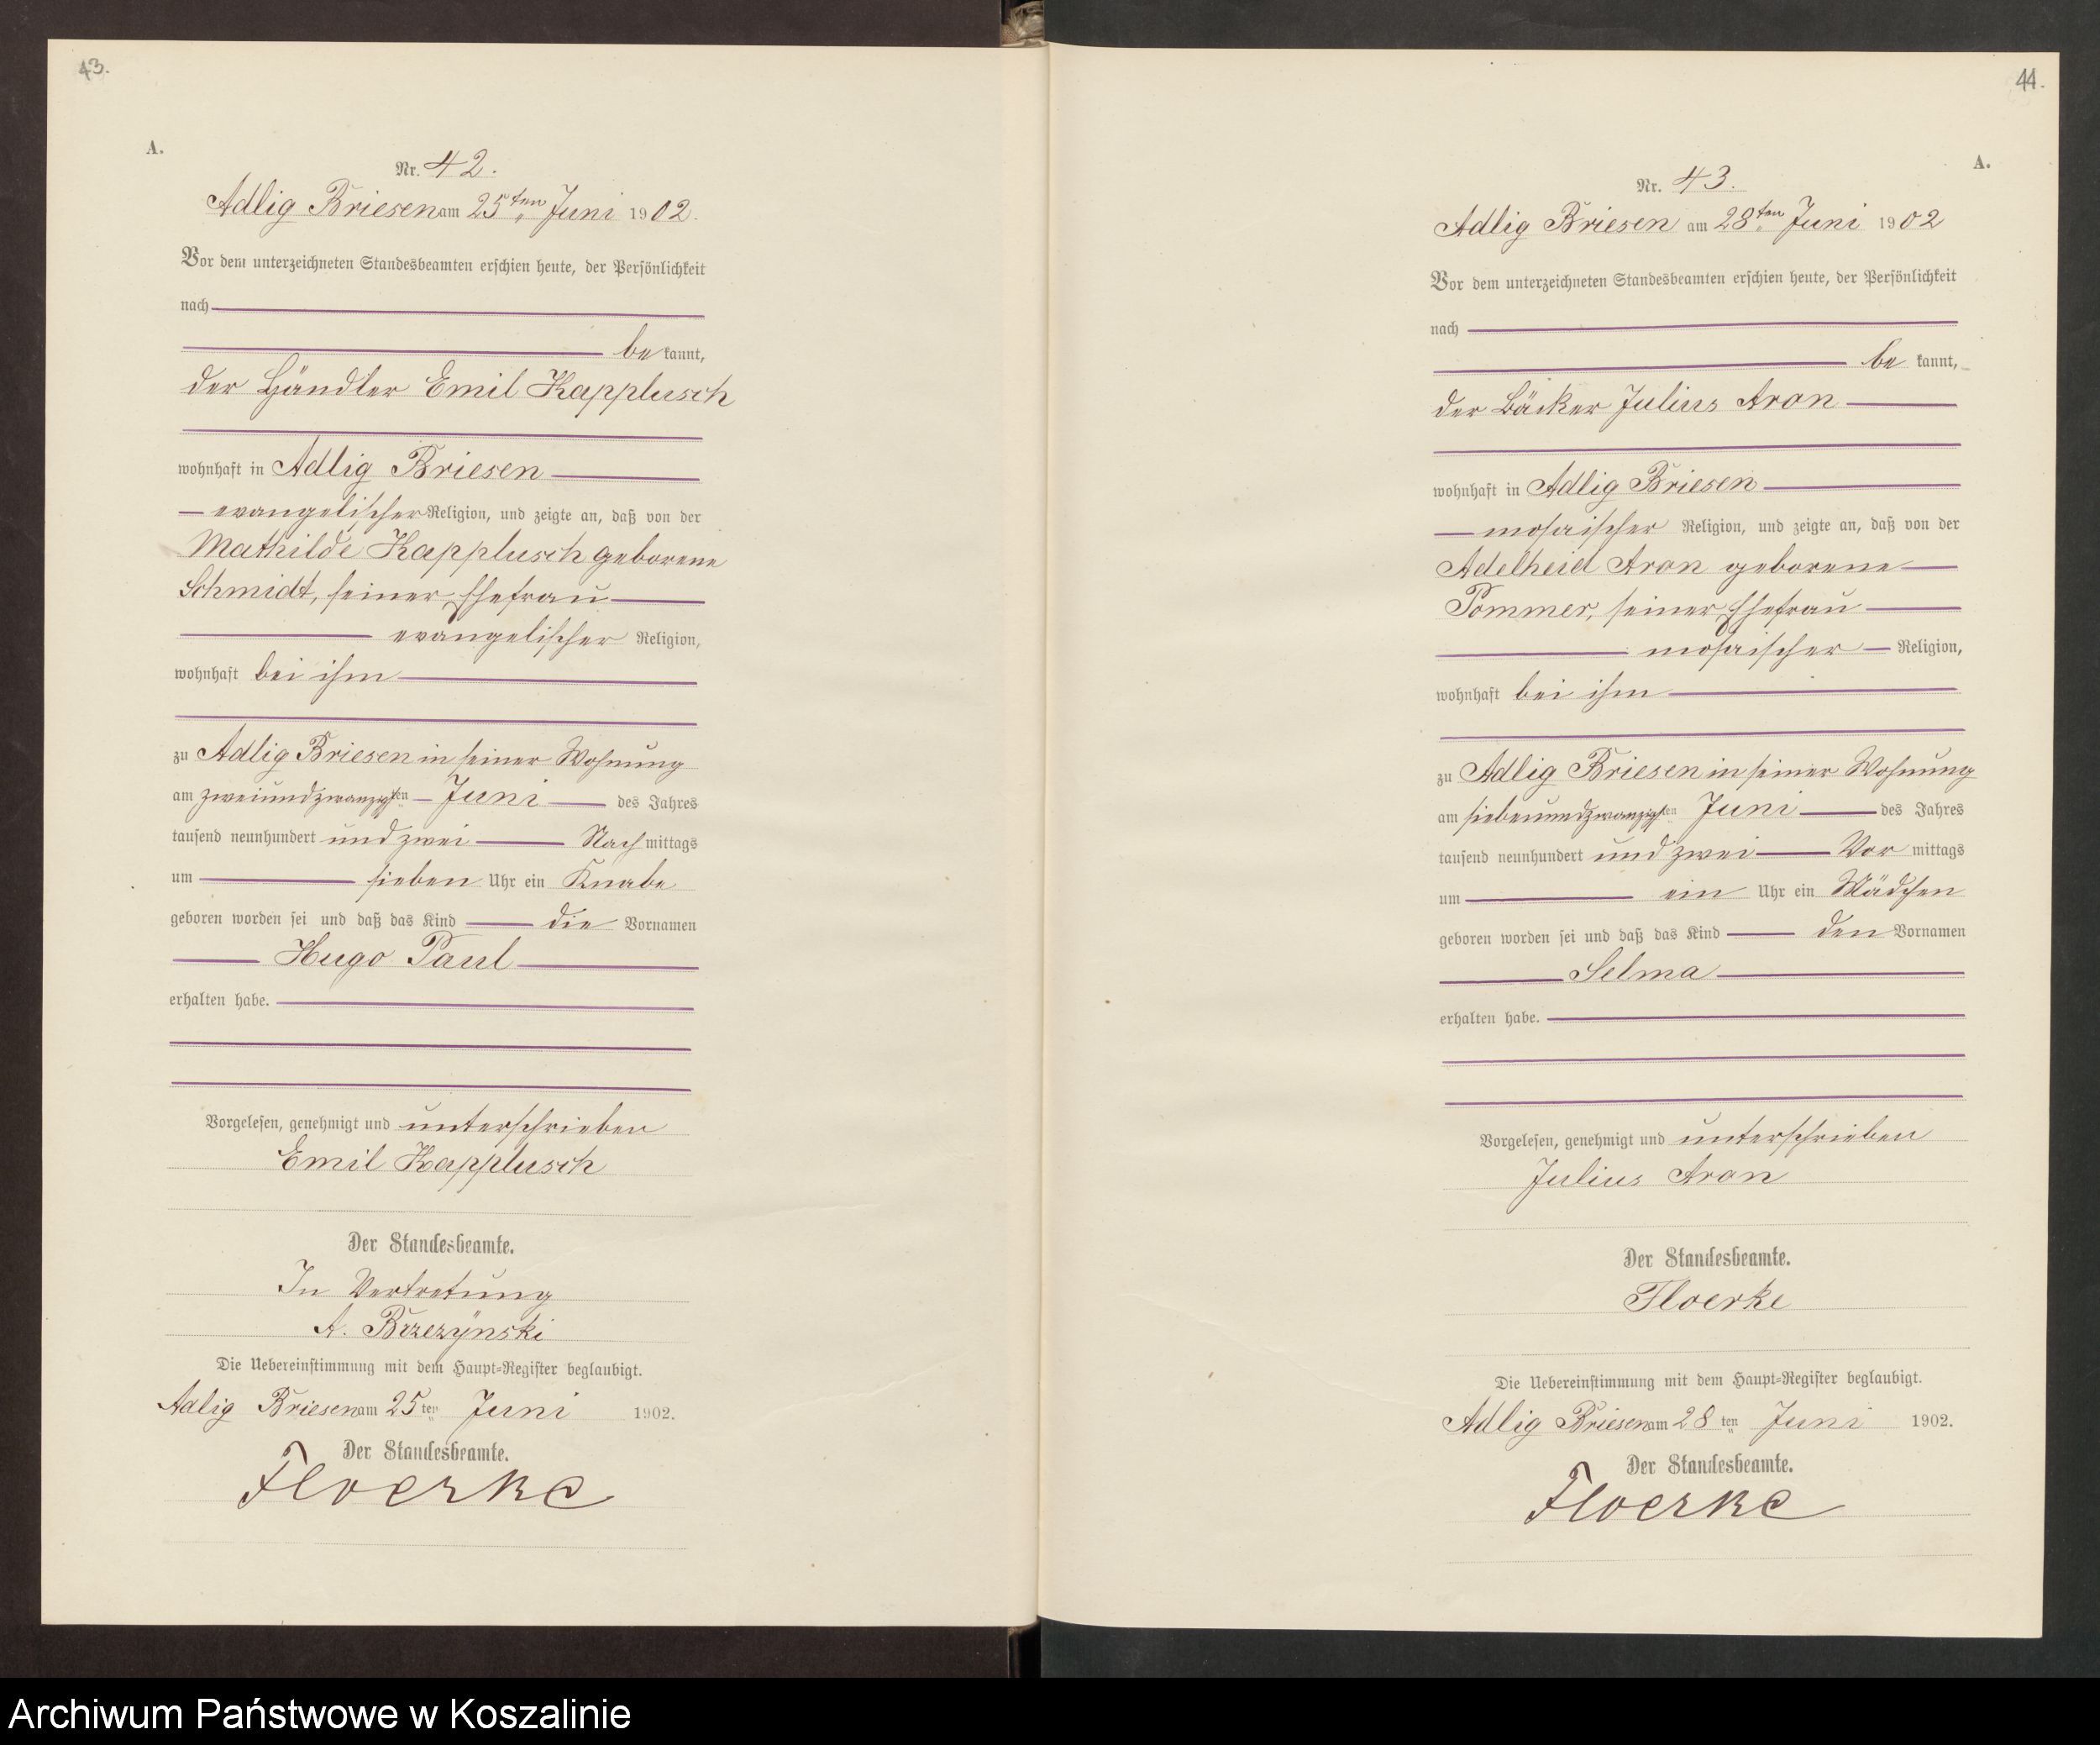 43.
A.
Nr. 42.
Adlig Briesen am 25ten Juni 1902.
Vor dem unterzeichneten Standesbeamten erschien heute, der Persönlichkeit
nach
bekannt,
der Händler Emil Kapplusch
wohnhaft in Adlig Briesen
evangelischer Religion, und zeigte an, daß von der
Mathilde Kapplusch geborene
Schmidt, seiner Ehefrau
evangelischer Religion,
wohnhaft bei ihm
zu Adlig Briesen in seiner Wohnung
am zweiundzwanzigsten Juni des Jahres
tausend neunhundert und zwei Nachmittags
um sieben Uhr ein Knabe
geboren worden sei und daß das Kind die Vornamen
Hugo Paul
erhalten habe.
Vorgelesen, genehmigt und unterschrieben
Emil Kapplusch
Der Standesbeamte.
In Vertretung
A. Brzezynski
Die Uebereinstimmung mit dem Haupt=Register beglaubigt.
Adlig Briesen am 25ten Juni 1902.
Der Standesbeamte.
Floerke
44.
A.
Nr. 43.
Adlig Briesen am 28ten Juni 1902
Vor dem unterzeichneten Standesbeamten erschien heute, der Persönlichkeit
nach
bekannt,
der Bäcker Julius Aron
wohnhaft in Adlig Briesen
mosaischer Religion, und zeigte an, daß von der
Adelheid Aron geborene
Pommer, seiner Ehefrau
mosaischer Religion,
wohnhaft bei ihm
zu Adlig Briesen in seiner Wohnung
am siebenundzwanzigsten Juni des Jahres
tausend neunhundert und zwei Vormittags
um ein Uhr ein Mädchen
geboren worden sei und daß das Kind den Vornamen
Selma
erhalten habe.
Vorgelesen, genehmigt und unterschrieben
Julius Aron
Der Standesbeamte.
Floerke
Die Uebereinstimmung mit dem Haupt=Register beglaubigt.
Adlig Briesen am 28ten Juni 1902.
Der Standesbeamte.
Floerke
Archiwum Państwowe w Koszalinie